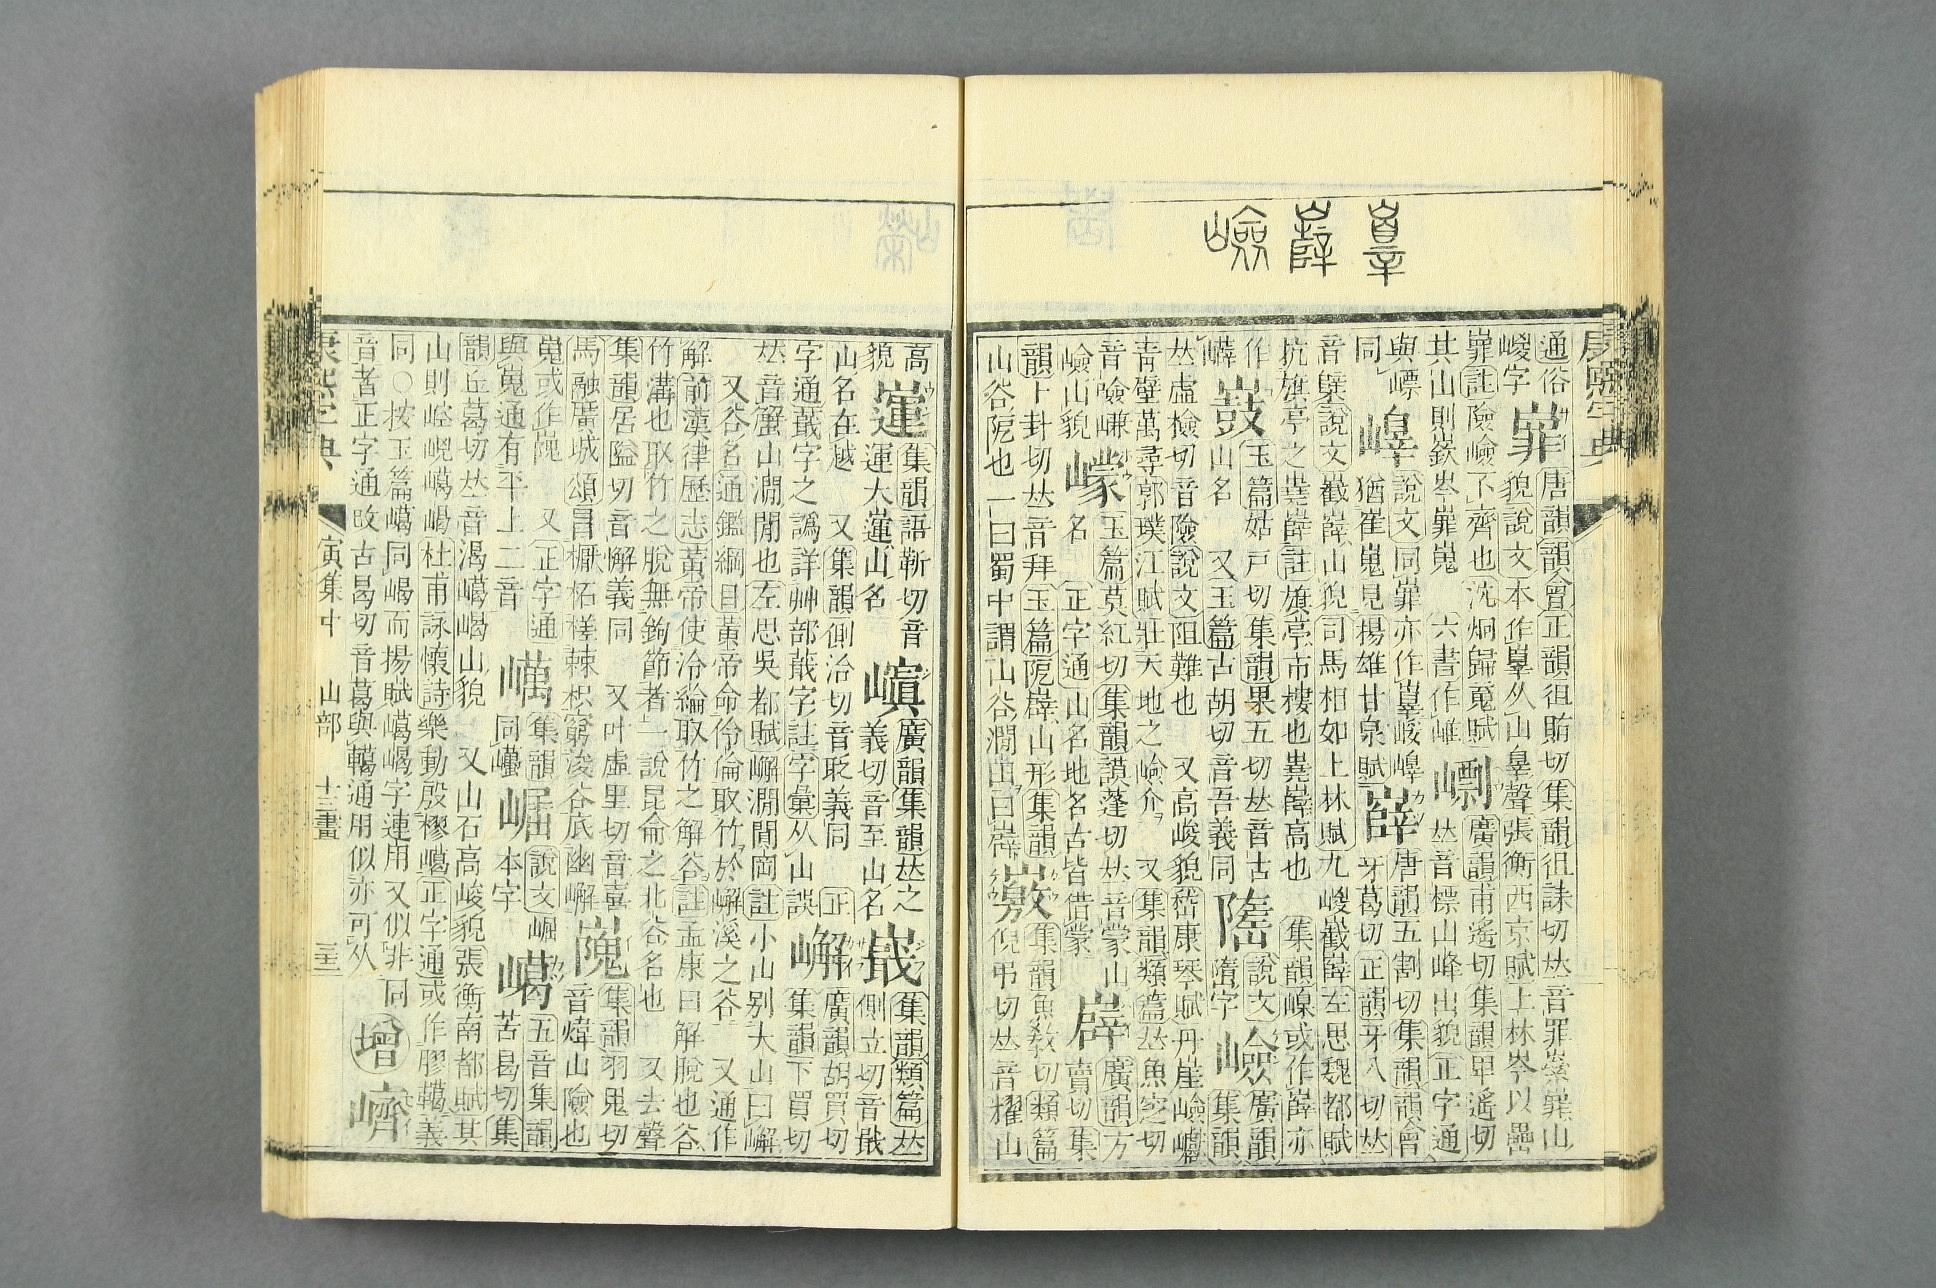 嶵 嶭 嶮
康熙字典
通俗 唐韻韻會正韻徂賄切集韻徂誄切𠀤音罪嶪嶵山
峻字 嶵 貌說文本作嶵从山辠聲張衡西京賦上林岑以壘
嶵註險嶮不齊也沈炯歸䰟賦 廣韻甫遙切集韻卑遙切
其山則嶔岑嶵嵬 六書作嶉 𠀤音標山峰出貌正字通
與嶂 說文同嶵亦作 唐韻五割切集韻韻會
同 嶂 猶崔嵬見揚雄甘泉賦 嶭 牙葛切正韻牙八切𠀤
音櫱說文巀嶭山貌司馬相如上林賦九嵏巀嶭左思魏都賦
抗旗亭之嶤嶭註旗亭市樓也嶤嶭高也 集韻或作嶭亦
作 玉篇姑戸切集韻果五切𠀤音古 說文 廣韻
山名 又玉篇古胡切音吾義同 隓字 嶮 集韻
𠀤虛檢切音險說文阻難也 又高峻貌嵆康琴賦丹崖嶮巇
靑壁萬尋郭璞江賦壯天地之嶮介 又集韻類篇𠀤魚窆切
音噞嵰 玉篇莫紅切集韻謨蓬切𠀤音蒙山 廣韻方
嶮山貌 㠓 名 正字通山名地名古皆借蒙 賣切集
韻卜卦切𠀤音拜玉篇陒 山形集韻 集韻魚敎切類篇
山谷陒也一曰蜀中謂山谷澗田曰 倪弔切𠀤音㿑山
高 集韻語靳切音 廣韻集韻𠀤之 集韻類篇𠀤
貌 運大 山名 義切音至山名 嶯 側立切音戢
山名在越 又集韻側洽切音眨義同 正 廣韻胡買切
字通蕺字之譌詳艸部蕺字註字彙从山誤 嶰 集韻下買切
𠀤音蟹山澗閒也左思吳都賦嶰澗閴岡註小山別大山曰嶰
又谷名通鑑綱目黃帝命伶倫取竹於嶰溪之谷 又通作
解前漢律歷志黃帝使泠綸取竹之解谷註孟康曰解脫也谷
竹溝也取竹之脫無鉤節者一說昆侖之北谷名也 又去聲
集韻居隘切音懈義同 又叶虛里切音喜 集韻羽鬼切
馬融廣城頌冒橛柘槎棘枳窮浚谷底幽嶰 音煒山險也
嵬或作䧥 又正字通 集韻 說文崛 五音集韻
與嵬通有平上二音 同 崛 本字 嶱 苦曷切集
韻丘葛切𠀤音渴嶱嵑山貌 又山石高峻貌張衡南都賦其
山則崆㟅嶱嵑杜甫詠懷詩樂動殷樛嶱正字通或作膠轕義
同○按玉篇嶱同嵑而揚賦嶱嵑字連用又似非同
音者正字通改古曷切音葛與轕通用似亦可从 增 嶹
康熙字典 寅集中 山部 十三畫